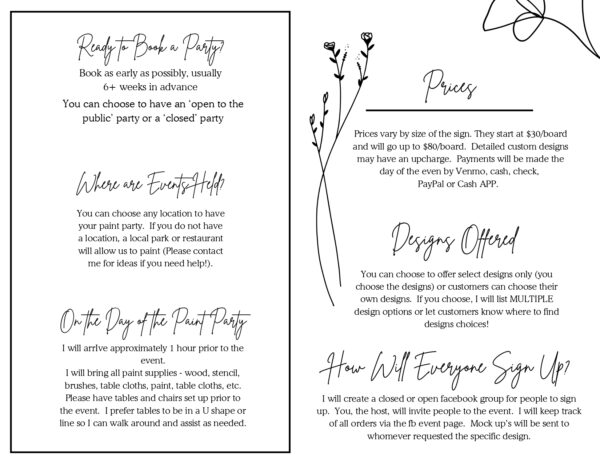 Ready to Book a Party?
Book as early as possibly, usually
6+ weeks in advance
You can choose to have an 'open to the
public' party or a 'closed' party
Where are Events Held?
You can choose any location to have
your paint party. If you do not have
a location, a local park or restaurant
will allow us to paint (Please contact
me for ideas if you need help!).
On the Day of the Paint Party
I will arrIve approximately 1 hour prior to the
event.
I will bring all paint supplies - wood, stencil,
brushes, table cloths, paint, table cloths, etc.
Please have tables and chairs set up prior to
the event. I prefer tables to be in a U shape or
line so I can walk around and assist as needed.
Prices
Prices vary by size of the sign. They start at $30/board
and will go up to $80/board. Detailed custom designs
may have an upcharge. Payments will be made the
day of the even by Venmo, cash, check,
PayPal or Cash APP.
Designs Offered
You can choose to offer select designs only (you
choose the designs) or customers can choose their
own designs. If you choose, I will list MULTIPLE
design options or let customers know where to find
designs choices!
How Will Everyone Sign Up?
I will create a closed or open facebook group for people to sign
up. You, the host, will invite people to the event. I will keep track
of all orders via the fb event page. Mock up's will be sent to
whomever requested the specific design.